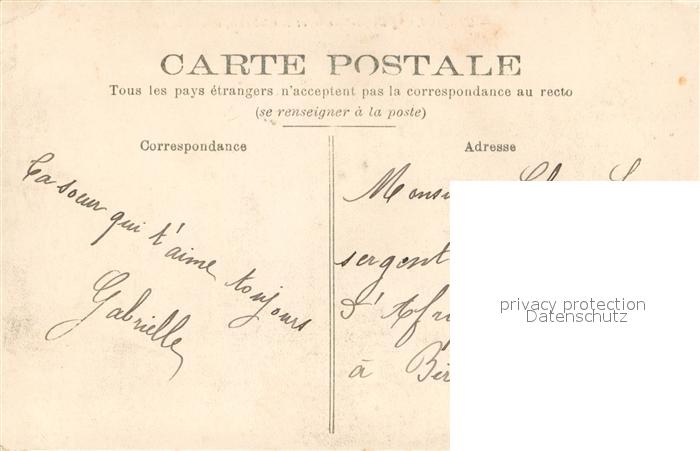 CARTE POSTALE
Tous les pays étrangers n'acceptent pas la correspondance au recto
(se renseigner à la poste)
Correspondance
Ta soeur qui t'aime toujours
Gabrielle
Adresse
sergent
d'Afri
à Bir
privacy protection
Datenschutz